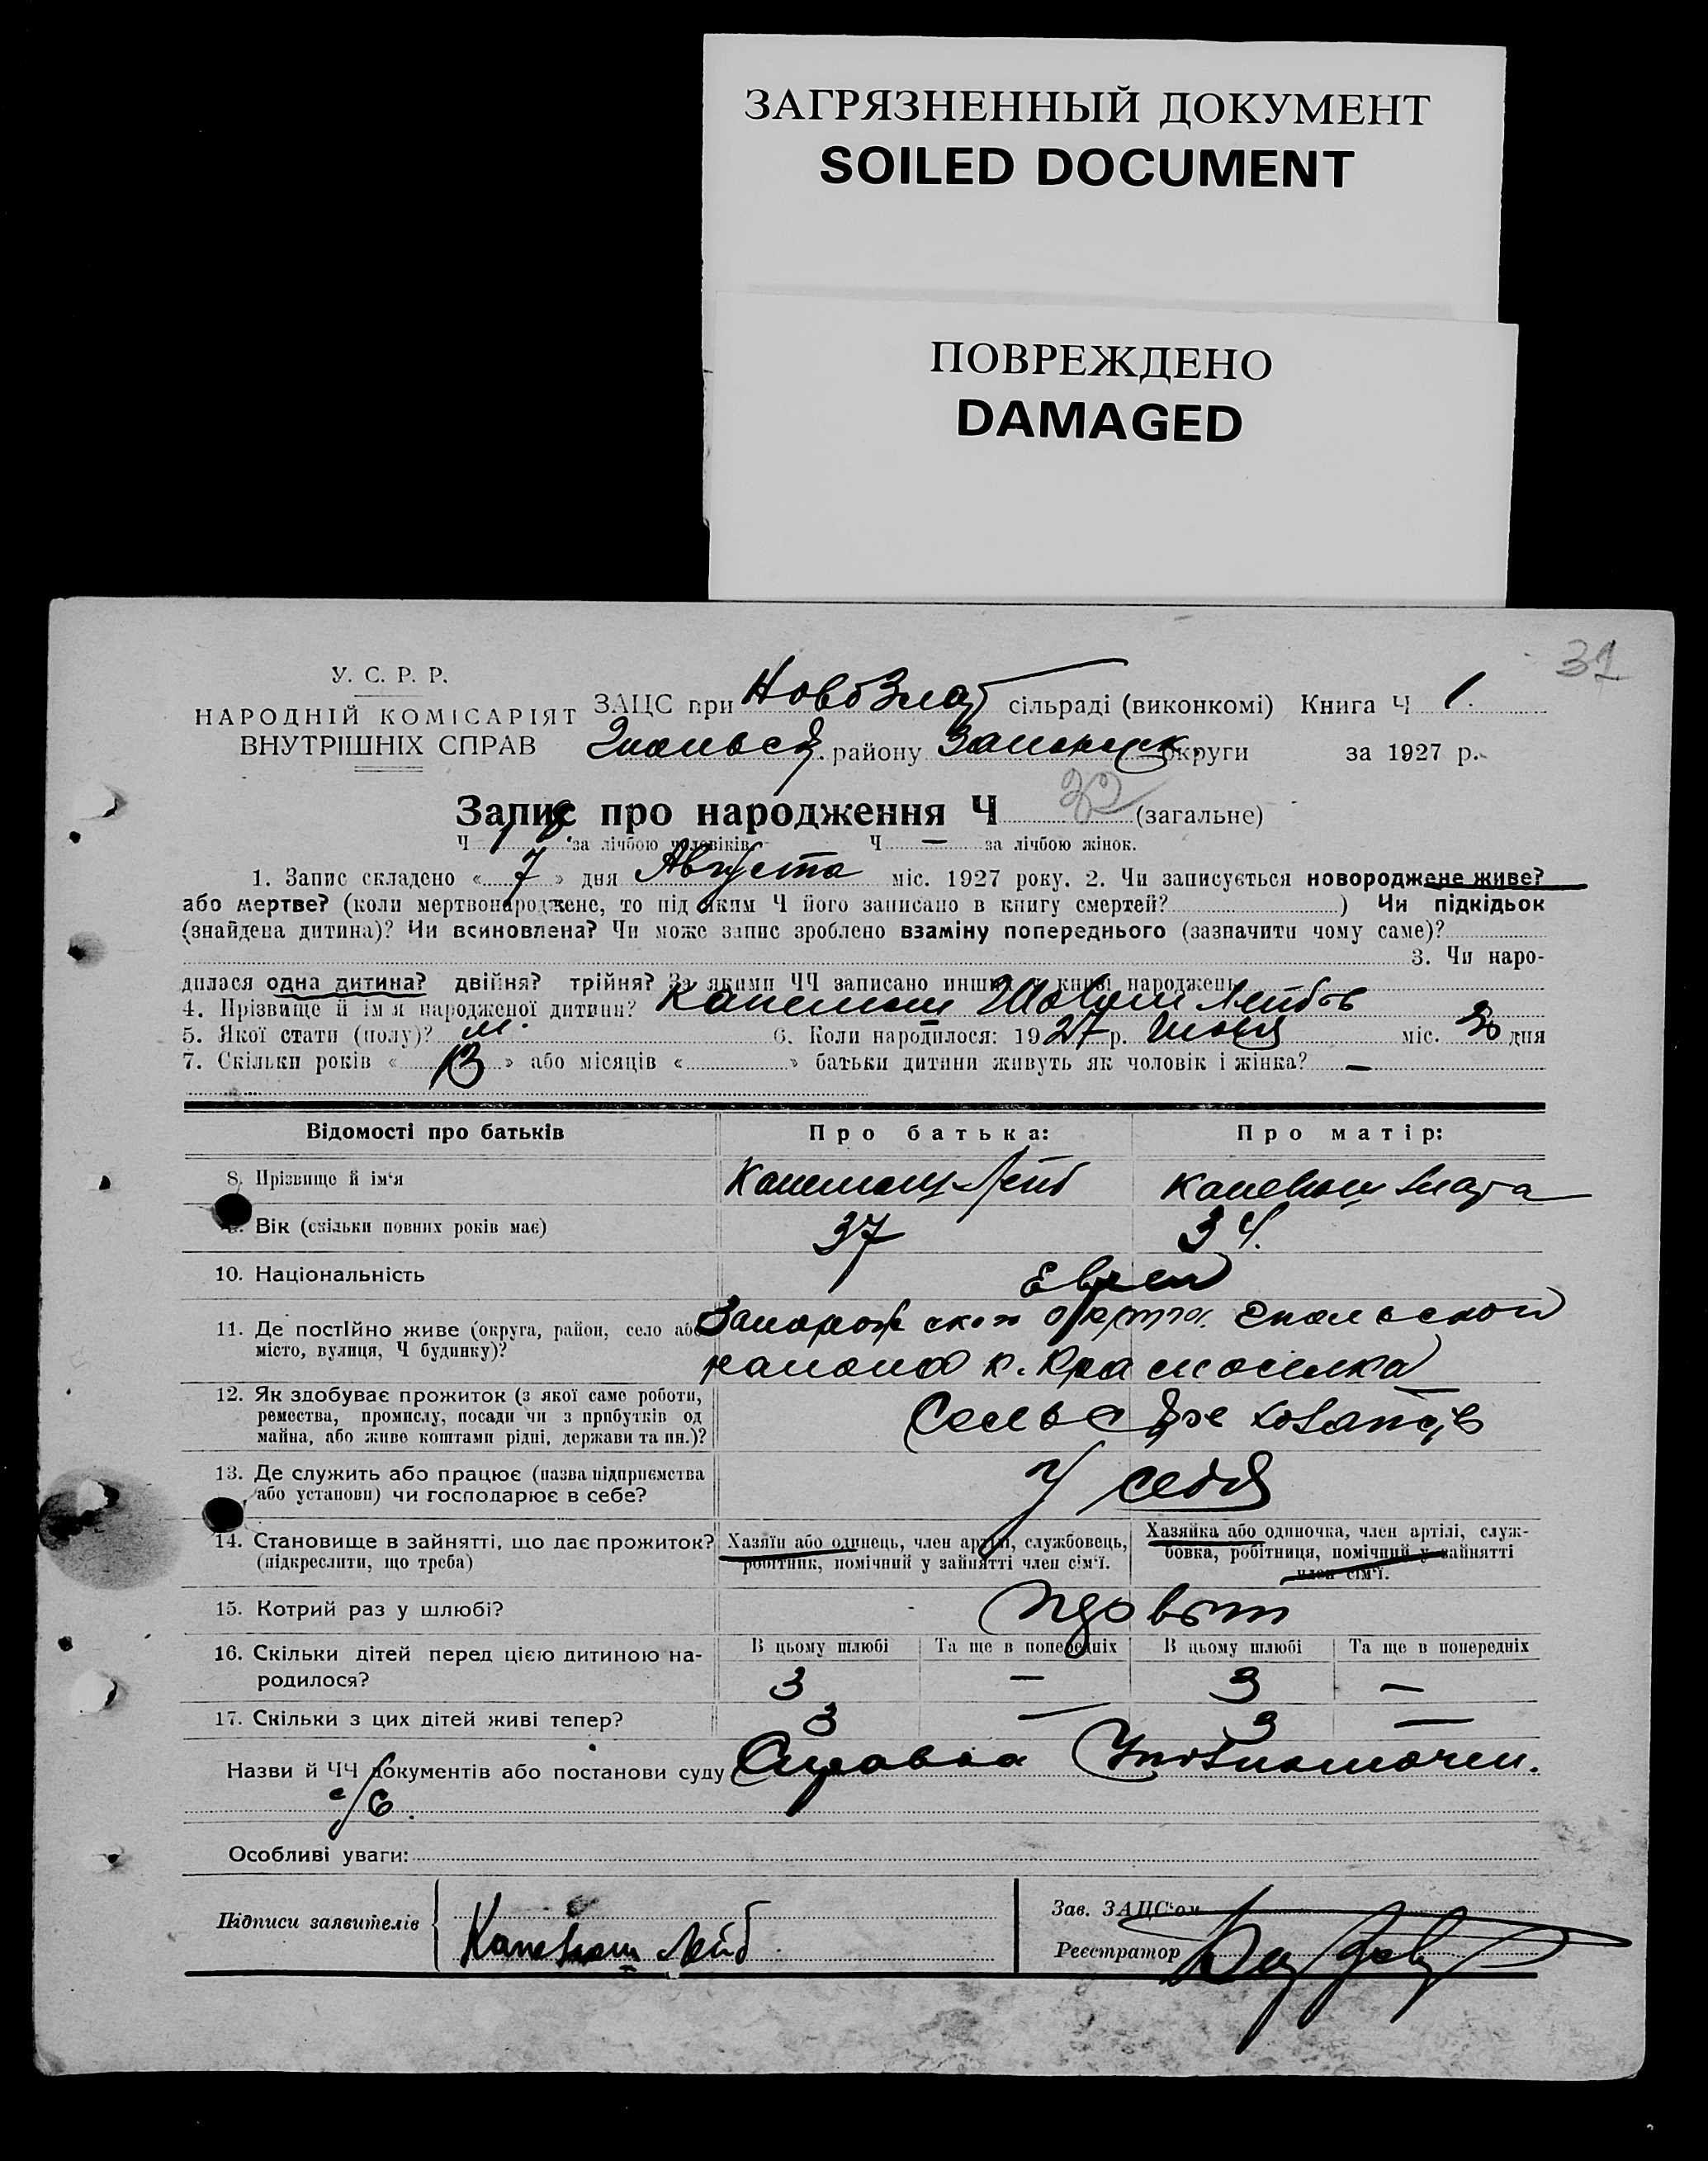 ЗАГРЯЗНЕННЫЙ ДОКУМЕНТ
SOILED DOCUMENT
ПОВРЕЖДЕНО
DAMAGED
31
У. С. Р. Р.
НАРОДНІЙ КОМІСАРІЯТ
ВНУТРІШНІХ СПРАВ
ЗАЦС при НовоЗлат сільраді (виконкомі) Книга Ч 1.
району округи за 1927 р.
Запис про народження Ч 32 (загальне)
Ч 18 за лічбою чоловіків Ч — за лічбою жінок.
1. Запис складено « 7 » дня Августа міс. 1927 року. 2. Чи записується новороджене живе?
або мертве? (коли мертвонароджене, то під яким Ч його записано в книгу смертей? ) Чи підкідьок
(знайдена дитина)? Чи всиновлена? Чи може запис зроблено взаміну попереднього (зазначити чому саме)?
3. Чи наро-
дилася одна дитина? двійня? трійня? За якими ЧЧ записано инших в книзі народжень
4. Прізвище й ім'я народженої дитини?
5. Якої стати (полу)? м. 6. Коли народилося: 1927 р. міс. 30 дня
7. Скільки років « 13 » або місяців « » батьки дитини живуть як чоловік і жінка? —
Відомості про батьків Про батька: Про матір:
8. Прізвище й ім'я Лейб Злата
Вік (скільки повних років має) 37 34.
10. Національність Евреи
11. Де постійно живе (округа, район, село або Запорожского
місто, вулиця, Ч будинку)? района к. Красноселка
12. Як здобуває прожиток (з якої саме роботи,
ремества, промислу, посади чи з прибутків од
майна, або живе коштами рідні, держави та ин.)?
13. Де служить або працює (назва підприємства
або установи) чи господарює в себе? У себя
14. Становище в зайнятті, що дає прожиток?
(підкреслити, що треба)
Хазяїн або одинець, член артілі, службовець,
робітник, помічний у зайнятті член сім'ї.
Хазяйка або одиночка, член артілі, служ-
бовка, робітниця, помічний у зайнятті
член сім'ї.
15. Котрий раз у шлюбі?
16. Скільки дітей перед цією дитиною на-
родилося?
В цьому шлюбі Та ще в попередніх В цьому шлюбі Та ще в попередніх
3 — 3 —
17. Скільки з цих дітей живі тепер? 3 — 3 —
Назви й ЧЧ документів або постанови суду Справка Уполномочен.
с/С.
Особливі уваги:
Підписи заявителів Лейб
Зав. ЗАЦС'ом
Реєстратор